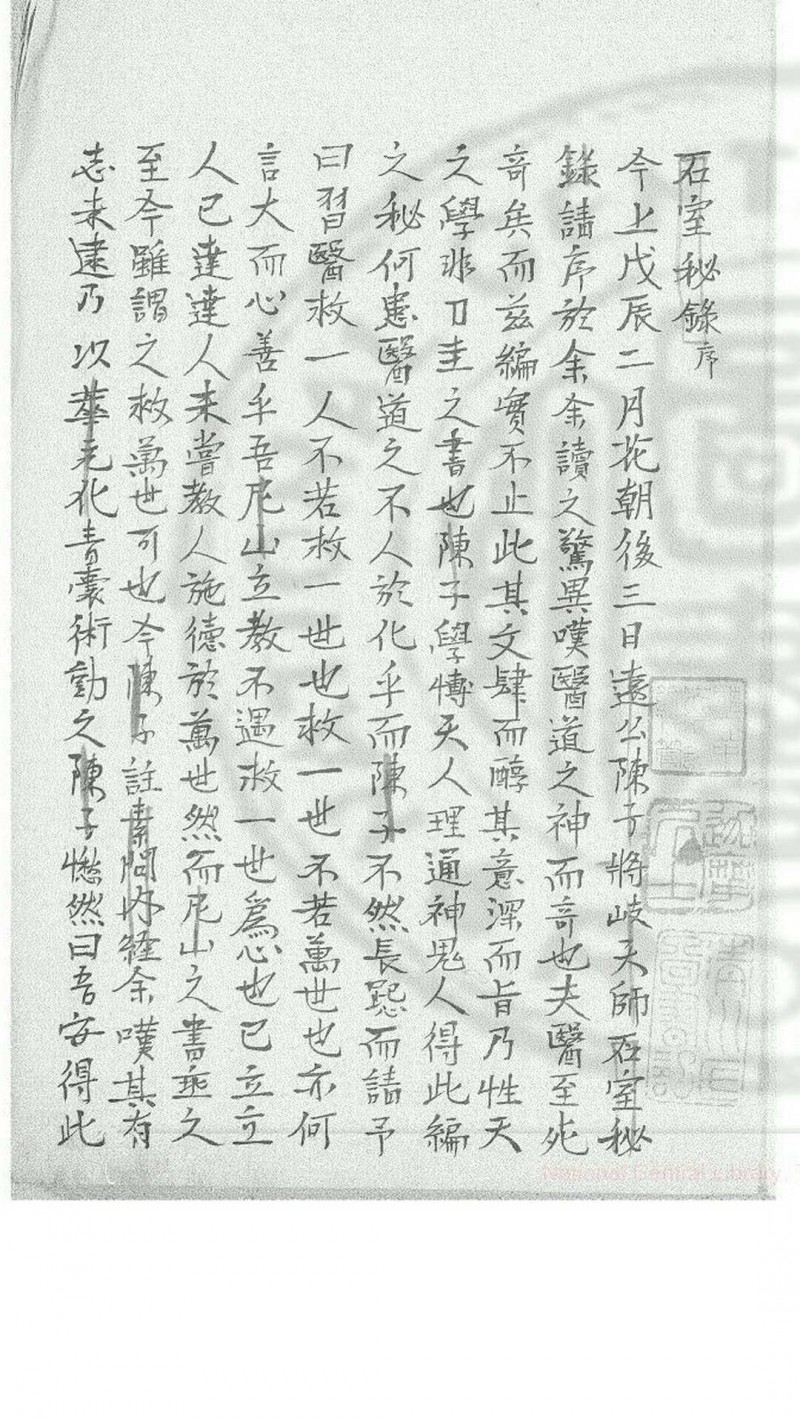 石室秘錄序
今上戊辰二月花朝後三日遠公陳子將岐天師石室秘
錄請序於余余讀之驚異嘆醫道之神而奇也夫醫至死
奇矣而茲編實不止此其文肆而醇其意深而旨乃性天
之學非刀圭之書也陳子學博天人理通神鬼人得此編
之秘何患醫道之不人於化乎而陳子不然長跽而請予
曰習醫救一人不若救一世也救一世不若萬世也亦何
言大而心善乎吾尼山立教不遇救一世爲心也已立立
人已達達人未嘗教人施德於萬世然而尼山之書垂之
至今雖謂之救萬世可也今陳子註素問內經余嘆其有
志未逮乃以華元化青囊術勸之陳子愀然曰吾安得此
National Central Library,